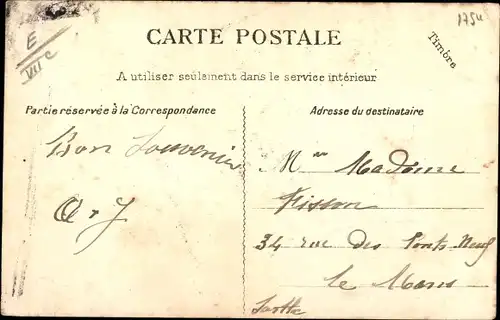 1754
E
VII c
CARTE POSTALE
Timbre
A utiliser seulement dans le service intérieur
Partie réservée à la Correspondance
Adresse du destinataire
Bon Souvenir
M Madame
Fisson
34 rue des Ponts Neufs
Le Mans
Sarthe